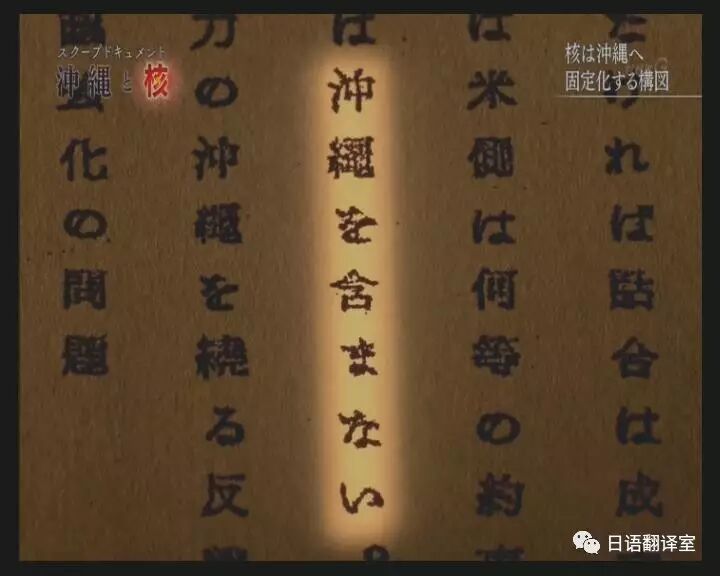 スクープドキュメント
沖縄と核
核は沖縄へ
固定化する構図
ければ話合は成
は米側は何等の約
は沖縄を含まない
力の沖縄を繞る反
化の問題
日语翻译室